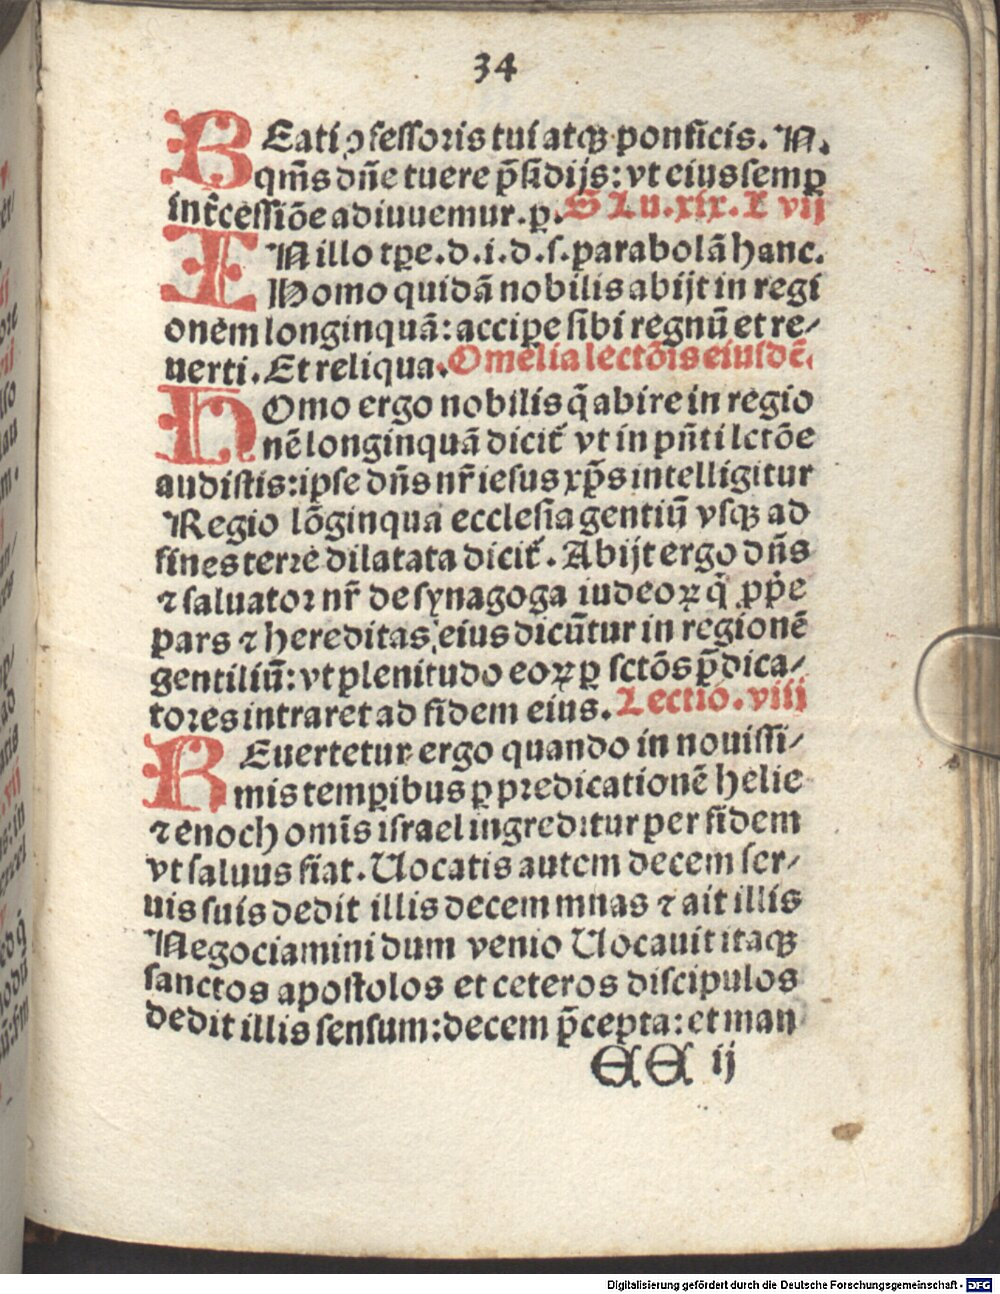 34
BEati ꝯfessoris tui atqꝫ pontificis. N.
qm̄s dn̄e tuere p̄sidijs: vt eius semꝑ
int̄cessiōe adiuuemur. p. S Lu. xix. L vij
IN illo tꝑe. d. i. d. s. parabolā hanc.
Homo quidā nobilis abijt in regi
onem longinquā: accipe sibi regnū et re⸗
uerti. Et reliqua. Omelia lectōis eiusdē.
HOmo ergo nobilis q̄ abire in regio
nē longinquā dicit̄ vt in pn̄ti lctōe
audistis: ipse dn̄s nr̄ iesus xp̄s intelligitur
Regio lōginqua ecclesia gentiū vsqꝫ ad
fines terre dilatata dicit̄. Abijt ergo dn̄s
⁊ saluator nr̄ de synagoga iudeoꝝ q̄ ꝓp̄e
pars ⁊ hereditas eius dicūtur in regionē
gentiliū: vt plenitudo eoꝝ ꝑ sctōs p̄dica⸗
tores intraret ad fidem eius. Lectio. viij
REuertetur ergo quando in nouissi⸗
mis temꝑibus ꝑ predicationē helie
⁊ enoch omīs israel ingreditur per fidem
vt saluus fiat. Uocatis autem decem ser⸗
uis suis dedit illis decem mnas ⁊ ait illis
Negociamini dum venio Uocauit itaqꝫ
sanctos apostolos et ceteros discipulos
dedit illis sensum: decem p̄cepta: et man
EE ij
Digitalisierung gefördert durch die Deutsche Forschungsgemeinschaft - DFG